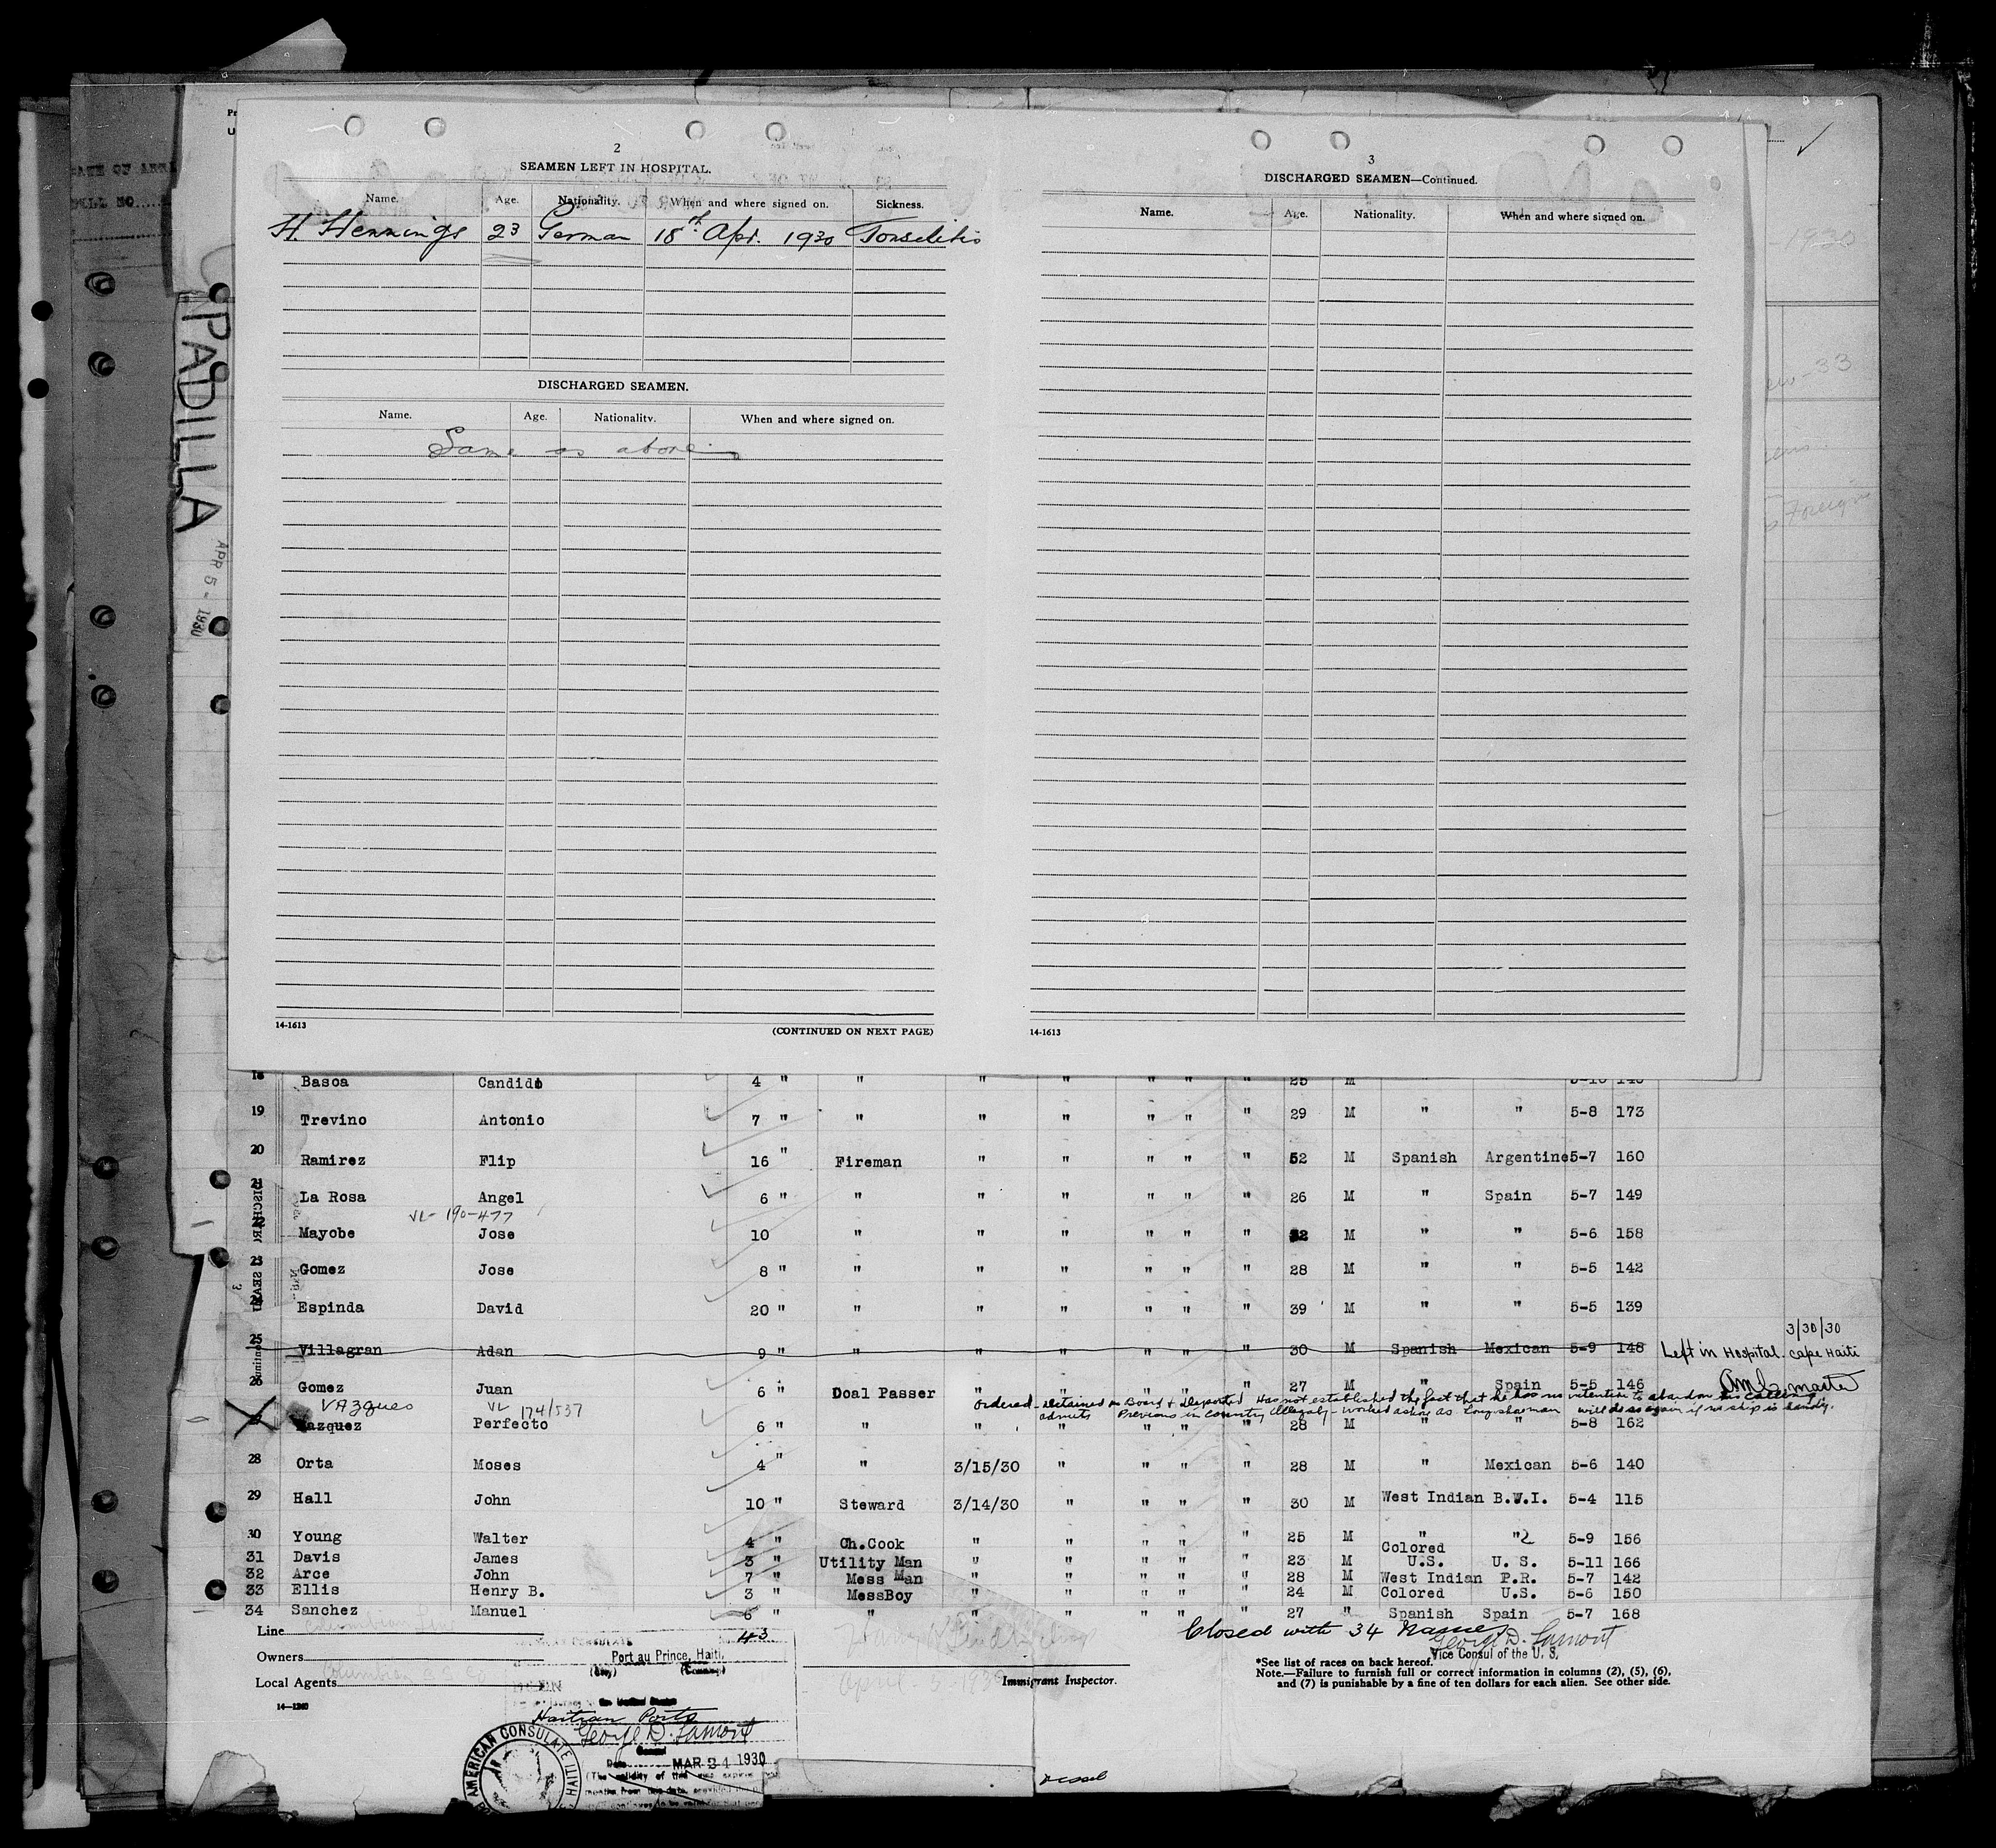 2
SEAMEN LEFT IN HOSPITAL.
Name. Age. Nationality. When and where signed on. Sickness.
H. Hennings 23 German 18th Apr. 1930 Tonselitis
DISCHARGED SEAMEN.
Name. Age. Nationality. When and where signed on.
Same as above
14-1613 (CONTINUED ON NEXT PAGE)
3
DISCHARGED SEAMEN—Continued.
Name. Age. Nationality. When and where signed on.
14-1613
PADILLA
APR 5 - 1930
-1930
33
Foreign
18 Basoa Candido 4 " " " " " " " 25 M " "
19 Trevino Antonio 7 " " " " " " " 29 M " " 5-8 173
20 Ramirez Flip 16 " Fireman " " " " " 52 M Spanish Argentine 5-7 160
21 La Rosa Angel 6 " " " " " " " 26 M " Spain 5-7 149
VL- 190-477
Mayobe Jose 10 " " " " " " M " " 5-6 158
23 Gomez Jose 8 " " " " " " " 28 M " " 5-5 142
Espinda David 20 " " " " " " " 39 M " " 5-5 139
3/30/30
25 Villagran Adan 9 " " " " " " " 30 M Spanish Mexican 5-9 148 Left in Hospital. Cape Haiti
26 Gomez Juan 6 " Doal Passer " " " " " 27 M " Spain 5-5 146 master
ordered - detained on Board & Deported Has not established the fact that he has no intention to abandon his calling
VAzques VL 174/537
admits Previous in country illegally - worked ashore as Longshoreman will do so again if no ship is handy.
Vazquez Perfecto 6 " " " " " " " 28 M " " 5-8 162
28 Orta Moses 4 " " 3/15/30 " " " " 28 M " Mexican 5-6 140
29 Hall John 10 " Steward 3/14/30 " " " " 30 M West Indian B.W.I. 5-4 115
30 Young Walter 4 " Ch.Cook " " " " " 25 M " " 5-9 156
31 Davis James 3 " Utility Man " " " " " 23 M Colored U.S. U. S. 5-11 166
32 Arce John 7 " Mess Man " " " " " 28 M West Indian P.R. 5-7 142
33 Ellis Henry B. 3 " MessBoy " " " " " 24 M Colored U.S. 5-6 150
34 Sanchez Manuel 6 " " " " " " " 27 " Spanish Spain 5-7 168
Closed with 34 Names
George D. Lamont
Vice Consul of the U. S.
Line
Owners
Local Agents
14—1240
43
Port au Prince, Haiti,
(City) (Country)
Haitian Ports
George D. Lamont
Consul
Date MAR 24 1930
AMERICAN CONSULATE
HAITI
April 5 - 1930
Immigrant Inspector.
*See list of races on back hereof.
Note.—Failure to furnish full or correct information in columns (2), (5), (6),
and (7) is punishable by a fine of ten dollars for each alien. See other side.
vessel